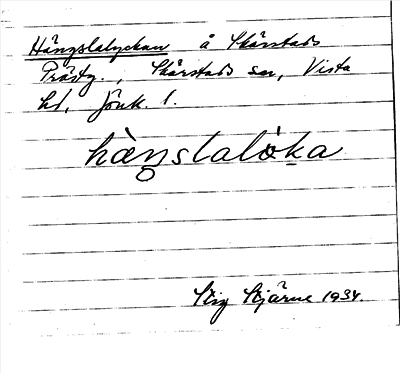 Hängslalyckan å Skärstads
Prästg., Skärstads sn, Vista
hd, Jönk. l.
hängslalöka
Stig Stjärne 1934.